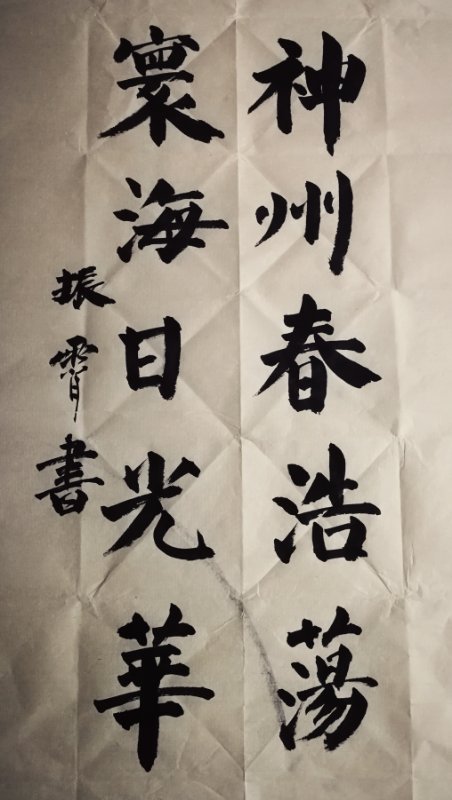 神州春浩蕩
寰海日光華
振霄書